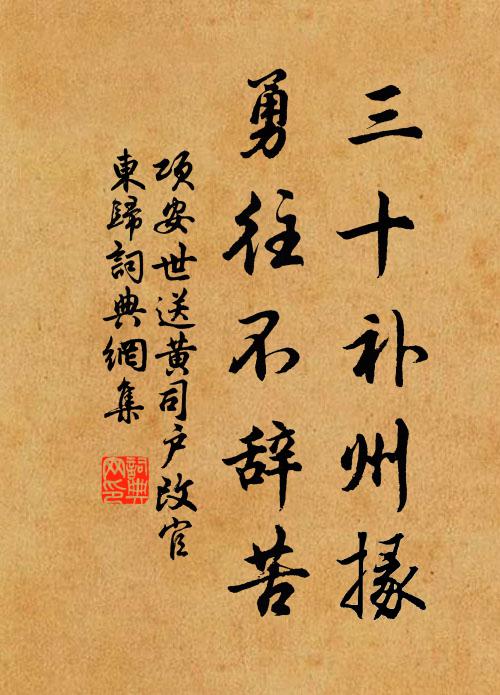 三十补州掾
勇往不辞苦
项安世送黄司户改官
東歸詞典網集
詞典网印